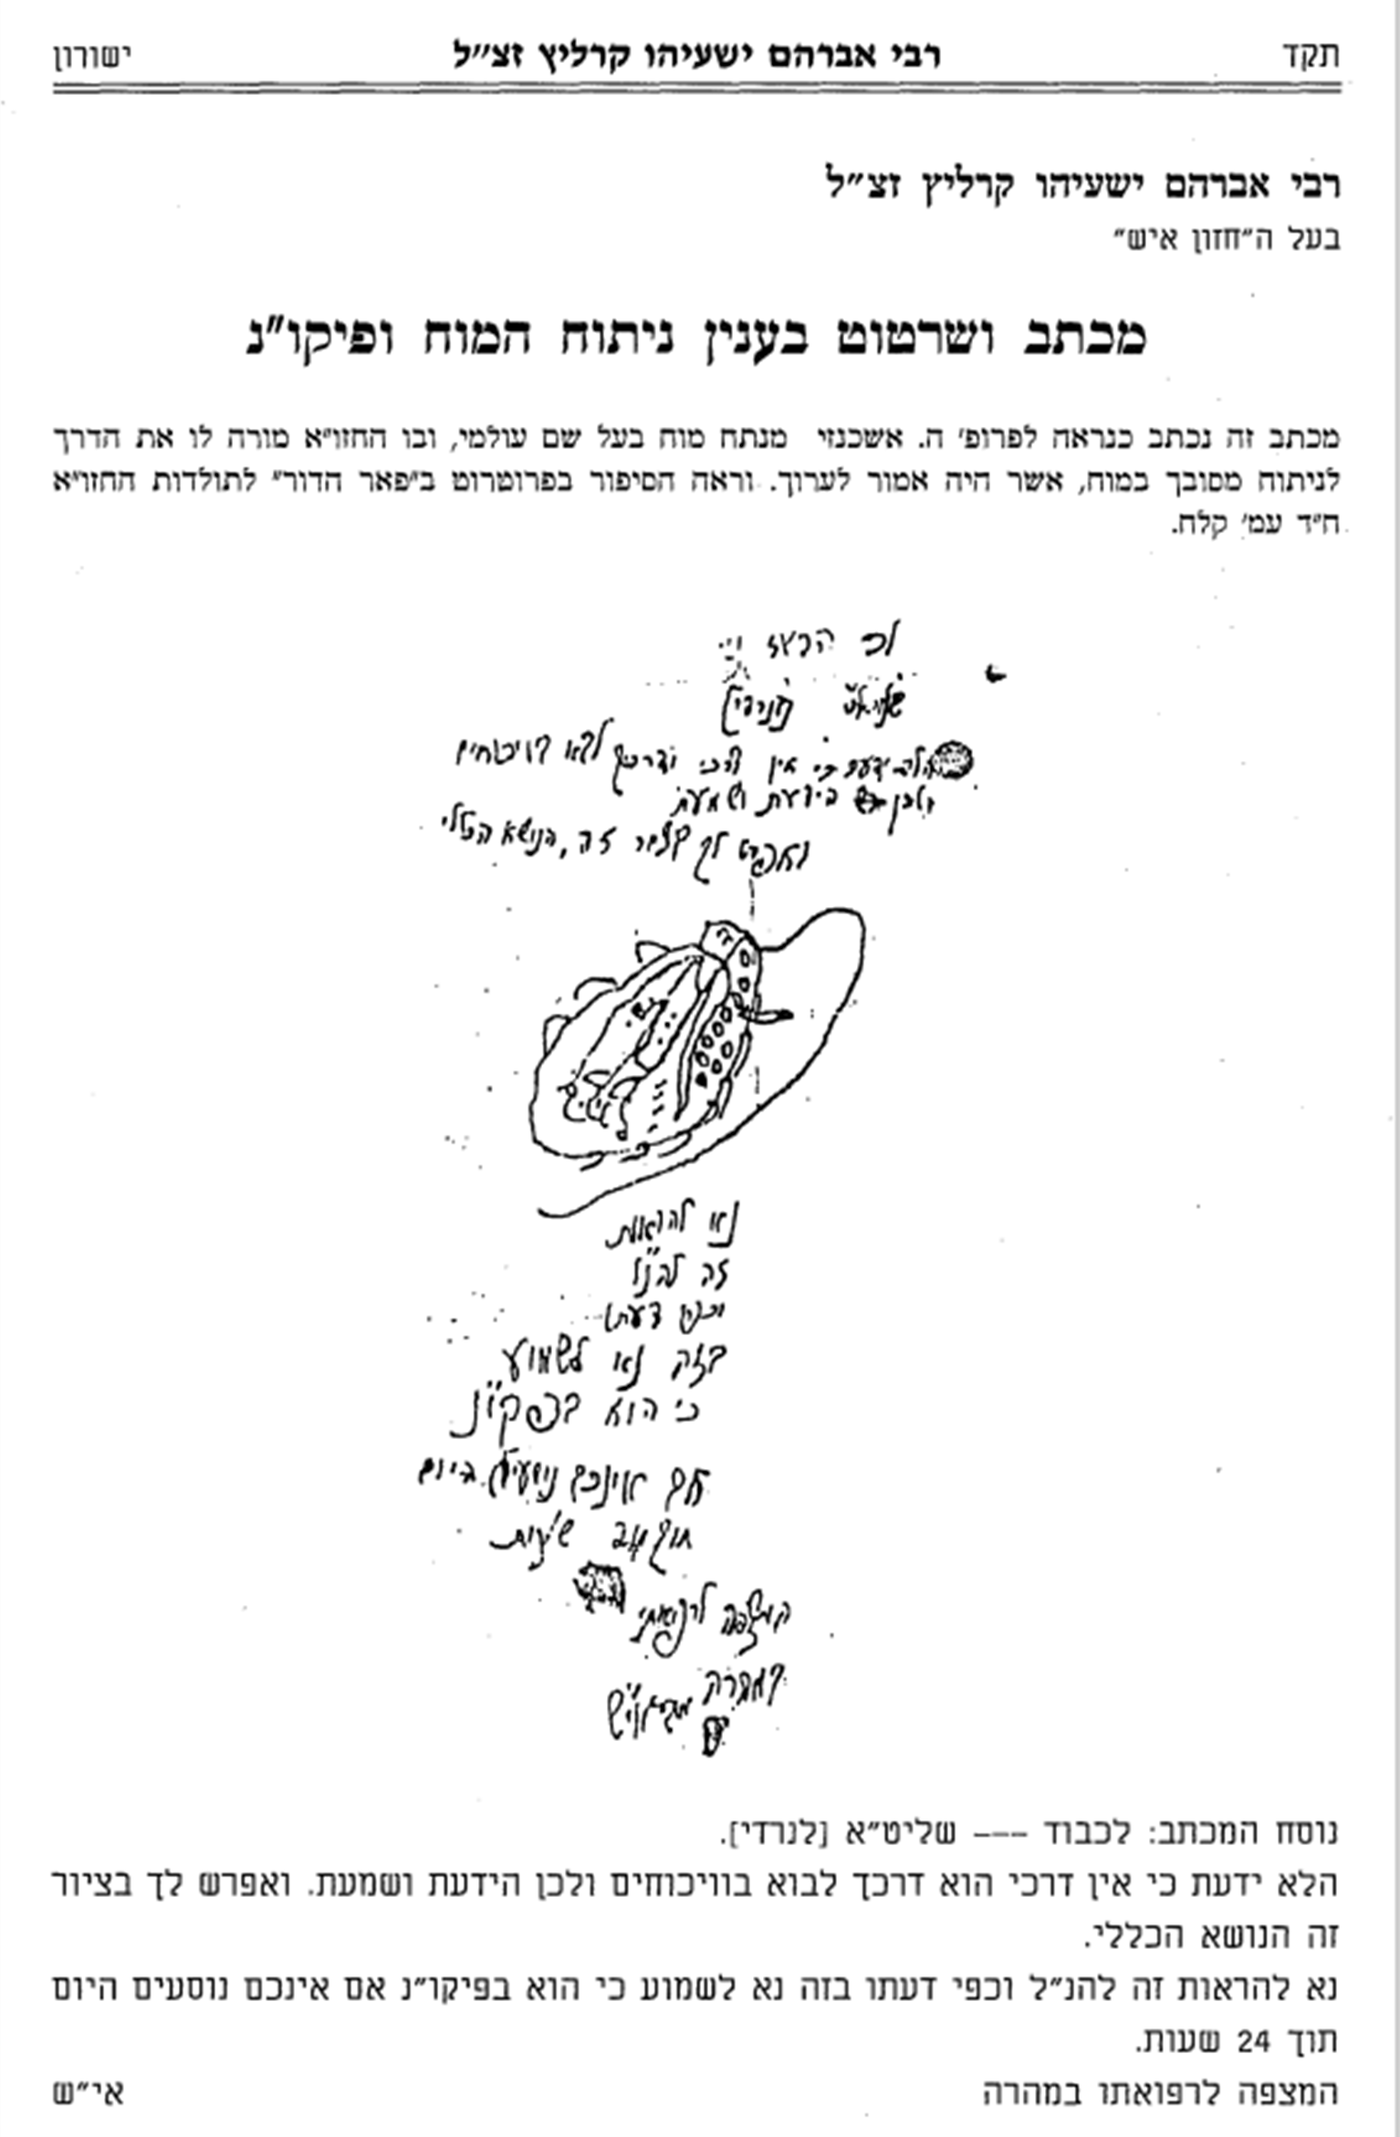 תקד רבי אברהם ישעיהו קרליץ זצ״ל ישורון
רבי אברהם ישעיהו קרליץ זצ״ל
בעל ה״חזון איש״
מכתב ושרטוט בענין ניתוח המוח ופיקו״נ
מכתב זה נכתב כנראה לפרופ׳ ה. אשכנזי מנתח מוח בעל שם עולמי, ובו החזו״א מורה לו את הדרך
לניתוח מסובך במוח, אשר היה אמור לערוך. וראה הסיפור בפרוטרוט ב״פאר הדור״ לתולדות החזו״א
ח״ד עמ׳ קלח.
ידעת כי אין דרכי
ולכן הידעת ושמעת
לך זה, הנושא הכללי
נא להראות
זה להנ״ל
וכפי דעתו
בזה נא לשמוע
כי הוא בפקו״נ
אם אינכם נוסעים היום
תוך 24 שעות
המצפה לרפואתו
נוסח המכתב: לכבוד --- שליט״א [לנרדי].
הלא ידעת כי אין דרכי הוא דרכך לבוא בוויכוחים ולכן הידעת ושמעת. ואפרש לך בציור
זה הנושא הכללי.
נא להראות זה להנ״ל וכפי דעתו בזה נא לשמוע כי הוא בפיקו״נ אם אינכם נוסעים היום
תוך 24 שעות.
המצפה לרפואתו במהרה אי״ש